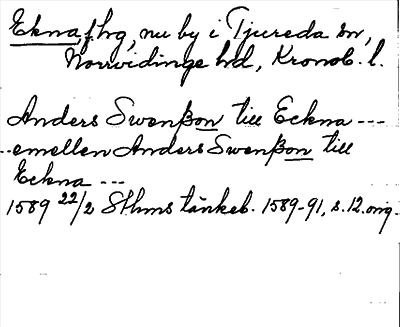 Ekna, f. hg, nu by i Tjureda sn,
Norrvidinge hd, Kronob. l.
Anders Swenßon till Eckna ---
--emellan Anders Swenßon till
Eckna ---
1589 22/2 Sthms tänkeb. 1589-91, s. 12. orig.